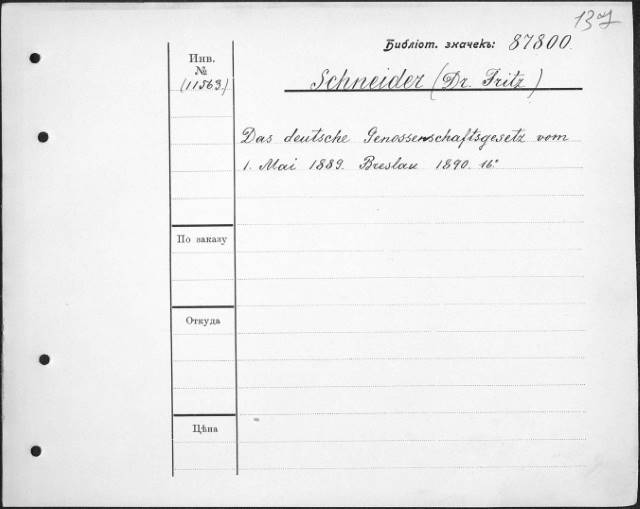 Библіот. значекъ: 87800.
Инв.
№
(11563)
Schneider (Dr. Fritz)
Das deutsche Genossenschaftsgesetz vom
1. Mai 1889. Breslau 1890. 16°
По заказу
Откуда
Цѣна